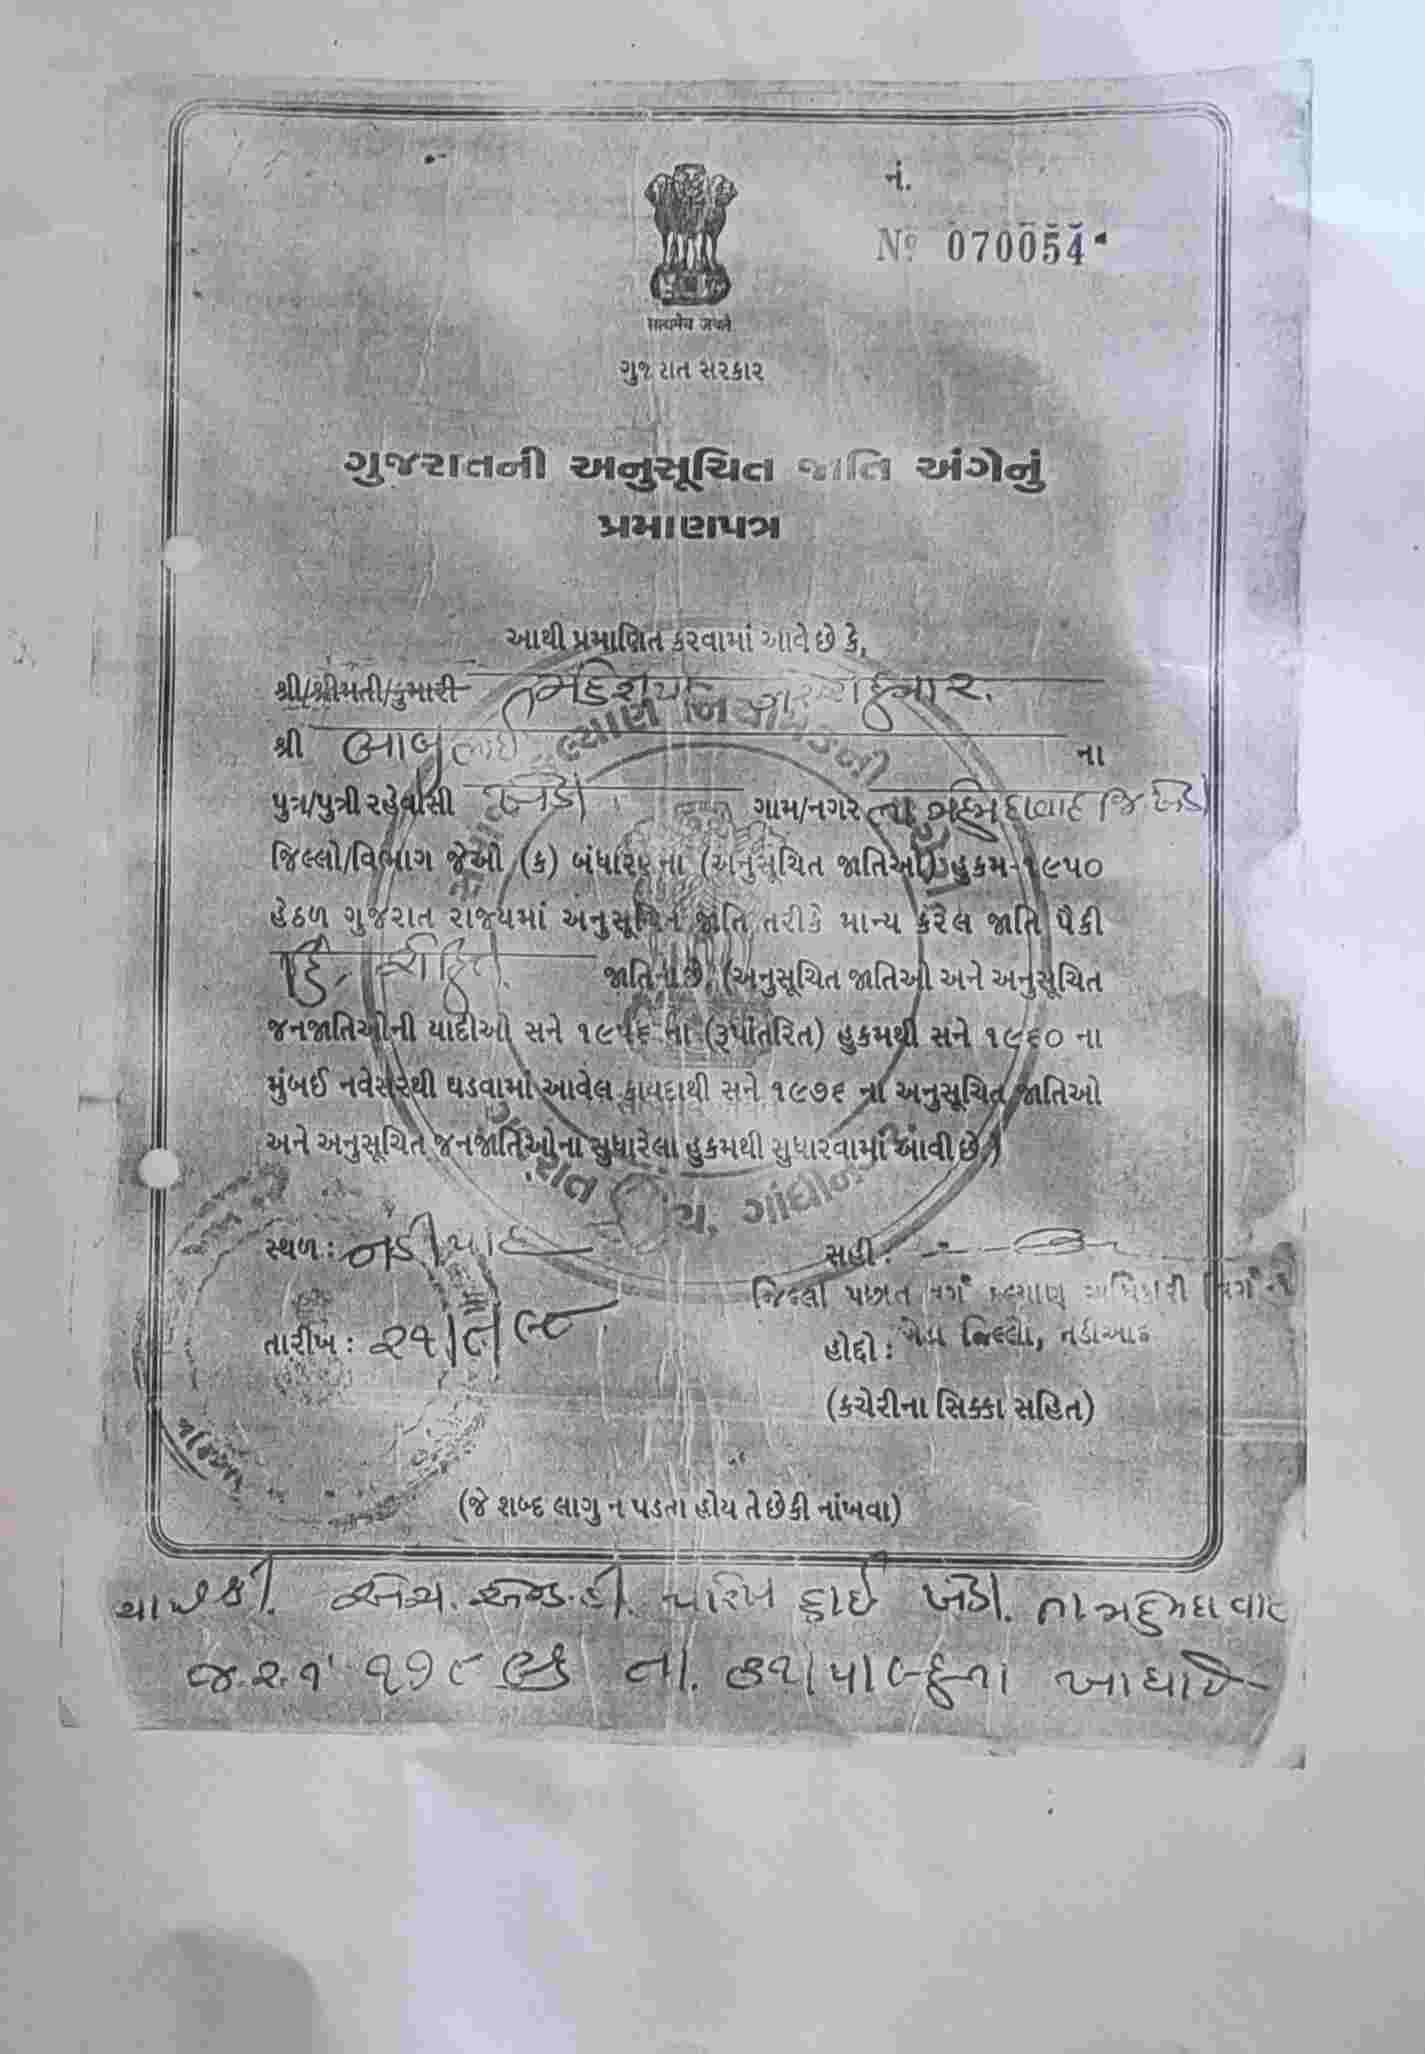 નં.
Nº 070054
सत्यमेव जयते
ગુજરાત સરકાર
ગુજરાતની અનુસૂચિત જાતિ અંગેનું
પ્રમાણપત્ર
આથી પ્રમાણિત કરવામાં આવે છે કે,
શ્રી/શ્રીમતી/કુમારી
શ્રી બાબુભાઈ ના
પુત્ર/પુત્રી રહેવાસી ખેડા ગામ/નગર તા મહેમદાવાદ જિ ખેડા
જિલ્લો/વિભાગ જેઓ (ક) બંધારણના (અનુસૂચિત જાતિઓ) હુકમ-૧૯૫૦
હેઠળ ગુજરાત રાજ્યમાં અનુસૂચિત જાતિ તરીકે માન્ય કરેલ જાતિ પૈકી
હિં. રોહિત જાતિના છે. (અનુસૂચિત જાતિઓ અને અનુસૂચિત
જનજાતિઓની યાદીઓ સને ૧૯૫૬ ના (રૂપાંતરિત) હુકમથી સને ૧૯૬૦ ના
મુંબઈ નવેસરથી ઘડવામાં આવેલ કાયદાથી સને ૧૯૭૬ ના અનુસૂચિત જાતિઓ
અને અનુસૂચિત જનજાતિઓના સુધારેલા હુકમથી સુધારવામાં આવી છે.)
સ્થળ : નડીયાદ સહી :
જિલ્લા પછાત વર્ગ કલ્યાણ અધિકારી વર્ગ-૨
તારીખ : હોદ્દો : ખેડા જિલ્લો, નડીઆદ
(કચેરીના સિક્કા સહિત)
(જે શબ્દ લાગુ ન પડતા હોય તે છેકી નાંખવા)
એચ. એન્ડ. ડી. પારેખ હાઈ ખેડા. તા મહેમદાવાદ
જ.ર.નં ના આધારે